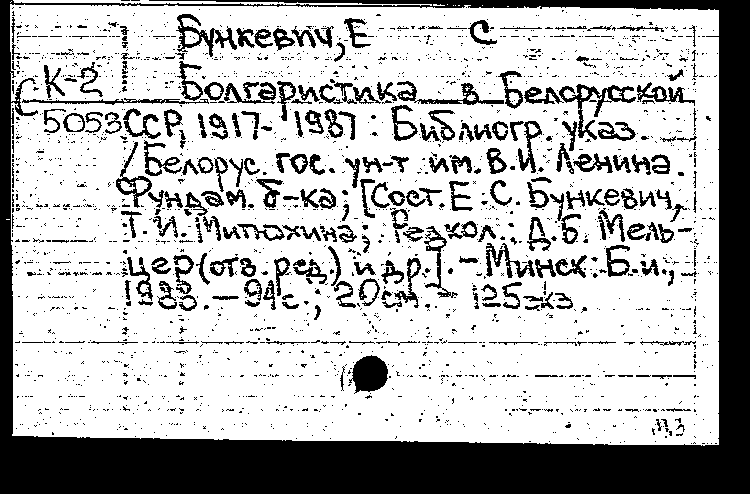 Бункевич, Е С
С К-2 Болгаристика в Белорусской
5053 ССР, 1917- 1987 : Библиогр. указ.
/Белорус. гос. ун-т им. В.И. Ленина.
Фундам. б-ка; [Сост. Е.С. Бункевич,
Т.И. Митюхина; Редкол.: Д.Б. Мель-
цер (отв. ред.) и др.]. - Минск: Б.и.,
1988. - 94с.; 20см. - 125экз.